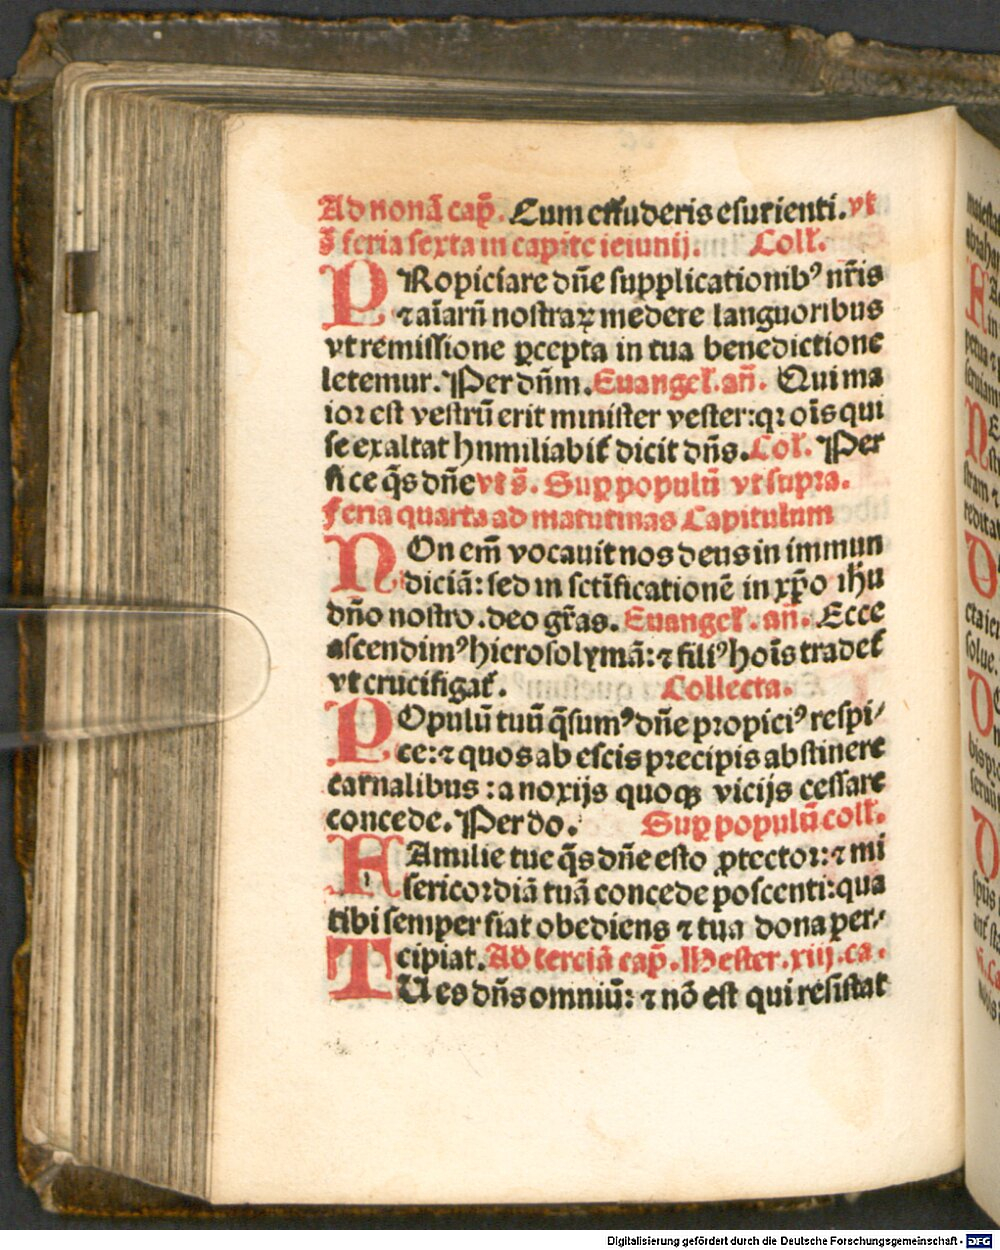 Ad nonā cap̄. Cum effuderis esurienti. vt
s̄ feria sexta in capite ieiunij. Coll̄.
PRopiciare dn̄e supplicationib⁹ nr̄is
⁊ aīarū nostraꝝ medere languoribus
vt remissione ꝑcepta in tua benedictione
letemur. Per dn̄m. Euangel̄. an̄. Qui ma
ior est vestrū erit minister vester: qꝛ oīs qui
se exaltat humiliabit̄ dicit dn̄s. Col̄. Per
fice q̄s dn̄e vt s̄. Suꝑ populū vt supra.
feria quarta ad matutinas Capitulum
NOn em̄ vocauit nos deus in immun
diciā: sed in sctīficationē in xp̄o ih̄u
dn̄o nostro. deo gr̄as. Euangel̄. an̄. Ecce
ascendim⁹ hierosolymā: ⁊ fili⁹ hoīs tradet̄
vt crucifigat̄. Collecta.
POpulū tuū q̄sum⁹ dn̄e propici⁹ respi/
ce: ⁊ quos ab escis precipis abstinere
carnalibus : a noxijs quoqꝫ vicijs cessare
concede. Per do. Suꝑ populū coll̄.
FAmilie tue q̄s dn̄e esto ꝓtector: ⁊ mi
sericordiā tuā concede poscenti: qua
tibi semper fiat obediens ⁊ tua dona per/
cipiat. Ad terciā cap̄. Hester. xiij. ca.
TU es dn̄s omniū: ⁊ nō est qui resistat
Digitalisierung gefördert durch die Deutsche Forschungsgemeinschaft - DFG